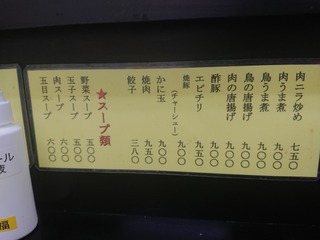 肉ニラ炒め 七五〇
肉うま煮 九〇〇
鳥うま煮 九〇〇
鳥の唐揚げ 九〇〇
肉の唐揚げ 九〇〇
酢豚 九〇〇
エビチリ 九五〇
焼豚(チャーシュー) 九〇〇
かに玉 九〇〇
焼肉 九五〇
餃子 三八〇
★スープ類
野菜スープ 五〇〇
玉子スープ 五〇〇
肉スープ 六〇〇
五目スープ 六〇〇
ール
液
福